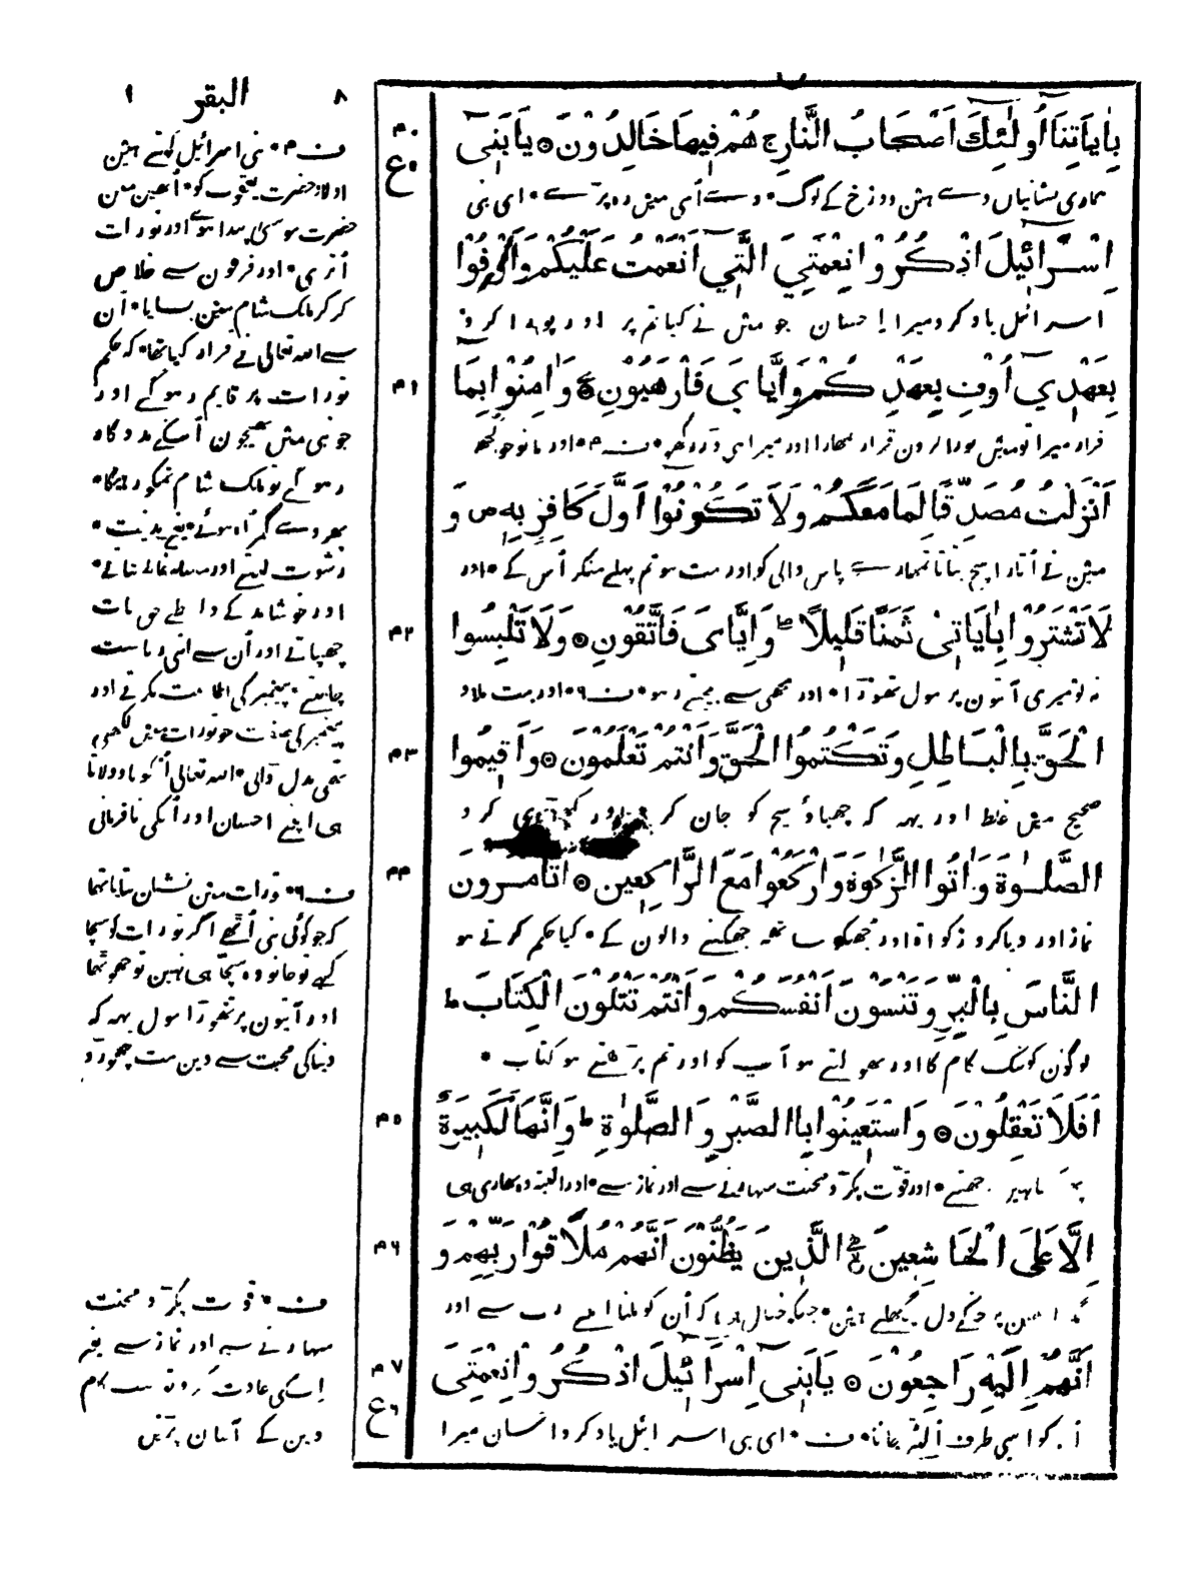 ٨ البقر ١
بِاٰيَاتِنَا اُولٰئِكَ اَصْحَابُ النَّارِ هُمْ فِيهَا خَالِدُوْنَ ۞ يَا بَنِىْ
هماری نشانیاں وے هین دوزخ کے لوگ • وے اُسی میں رہ پڑے • ای بنی
اِسْرَائِيْلَ اذْكُرُوْا نِعْمَتِيَ الَّتِيْ اَنْعَمْتُ عَلَيْكُمْ وَاَوْفُوْا
اسرائل یاد کرو میرا احسان جو میں نے کیا تم پر اور پورا کرو
بِعَهْدِيْ اُوْفِ بِعَهْدِكُمْ وَاِيَّايَ فَارْهَبُوْنِ ۞ وَاٰمِنُوْا بِمَا
قرار میرا تو میں پورا کرون قرار تمهارا اور میرا هی ڈر رکھو • ف ۴ • اور مانو جو کچھ
اَنْزَلْتُ مُصَدِّقًا لِمَا مَعَكُمْ وَلَا تَكُوْنُوْا اَوَّلَ كَافِرٍ بِهٖ ص وَ
مین نے اُتارا سچ بتاتا تمهارے پاس والی کو اور مت هو تم پہلے منکر اُس کے • اور
لَا تَشْتَرُوْا بِاٰيَاتِىْ ثَمَنًا قَلِيْلًا ط وَاِيَّاىَ فَاتَّقُوْنِ ۞ وَلَا تَلْبِسُوا
نہ لو میری آیتون پر مول تھوڑا • اور مجھی سے بچتے رهو • ف ٦ • اور مت ملاو
الْحَقَّ بِالْبَاطِلِ وَتَكْتُمُوا الْحَقَّ وَاَنْتُمْ تَعْلَمُوْنَ ۞ وَاَقِيْمُوا
صحیح میں غلط اور یہہ کہ چھپاؤ سچ کو جان کر اور کھڑی کرو
الصَّلٰوةَ وَاٰتُوا الزَّكٰوةَ وَارْكَعُوْا مَعَ الرَّاكِعِيْنَ ۞ اَتَأْمُرُوْنَ
نماز اور دیا کرو زکواۃ اور جھکو ساتھہ جھکنے والون کے • کیا حکم کرتے هو
النَّاسَ بِالْبِرِّ وَتَنْسَوْنَ اَنْفُسَكُمْ وَاَنْتُمْ تَتْلُوْنَ الْكِتَابَ ط
لوگون کو نیک کام کا اور بھولتے هو آپ کو اور تم پڑھتے هو کتاب •
اَفَلَا تَعْقِلُوْنَ ۞ وَاسْتَعِيْنُوْا بِالصَّبْرِ وَالصَّلٰوةِ ط وَاِنَّهَا لَكَبِيْرَةٌ
اور قوت پکڑو محنت سہارنے سے اور نماز سے • اور البتہ وہ بھاری هی
اِلَّا عَلَى الْخَاشِعِيْنَ ۞ الَّذِيْنَ يَظُنُّوْنَ اَنَّهُمْ مُلَاقُوْا رَبِّهِمْ وَ
جنکے دل پگھلے هین • جنکو خیال هی کہ اُن کو ملنا اپنے رب سے اور
اَنَّهُمْ اِلَيْهِ رَاجِعُوْنَ ۞ يَا بَنِىْ اِسْرَائِيْلَ اذْكُرُوْا نِعْمَتِىَ
کو اسی طرف اُلٹے جانا • ف • ای بنی اسرائل یاد کرو احسان میرا
۴۰
ع ٥
۴۱
۴۲
۴۳
۴۴
۴٥
۴٦
۴٧
ع ٦
ف ۴ • بنی اسرائیل کہتے هین
اولاد حضرت یعقوب کو • اُنھین مین
حضرت موسیٰ پیدا هوئے اور تورات
اُتری • اور فرعون سے خلاص
کر کر ملک شام مین بسایا • اُن
سے اللہ تعالی نے قرار کیا تھا • کہ حکم
تورات پر قایم رهو گے اور
جو نبی میں بھیجون اُسکے مددگار
رهو گے تو ملک شام تمکو رهیگا •
پھر وے گمراہ هوئے • یعنے بد نیت •
رشوت لیتے اور مسئلہ غلط بتاتے •
اور خوشامد کے واسطے حق بات
چھپاتے اور اُن سے اپنی ریاست
چاهتے • پیغمبر کی اطاعت نکرتے اور
پیغمبر کی صفت جو تورات میں لکھی
تھی بدل ڈالی • اللہ تعالی اُنکو یاد دلاتا
هی اپنے احسان اور اُنکی نافرمانی
ف ٦ • تورات مین نشان بتایا تھا
کہ جو کوئی نبی اُٹھے اگر تورات کو سچا
کہے تو جانو وہ سچا هی نہین تو جھوٹھا
اور آیتون پر تھوڑا مول یہہ کہ
دنیا کی محبت سے دین مت چھوڑو
ف • قوت پکڑو محنت
سہارنے سے اور نماز سے یعنے
اِسکی عادت کرو تو سب کام
دین کے آسان هوتے هین